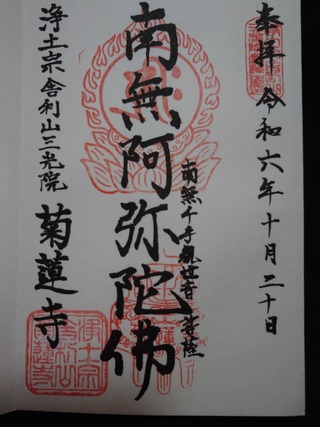 奉拝 令和六年十月二十日
南無千手観世音菩薩
南無阿弥陀佛
浄土宗舎利山三光院
菊蓮寺